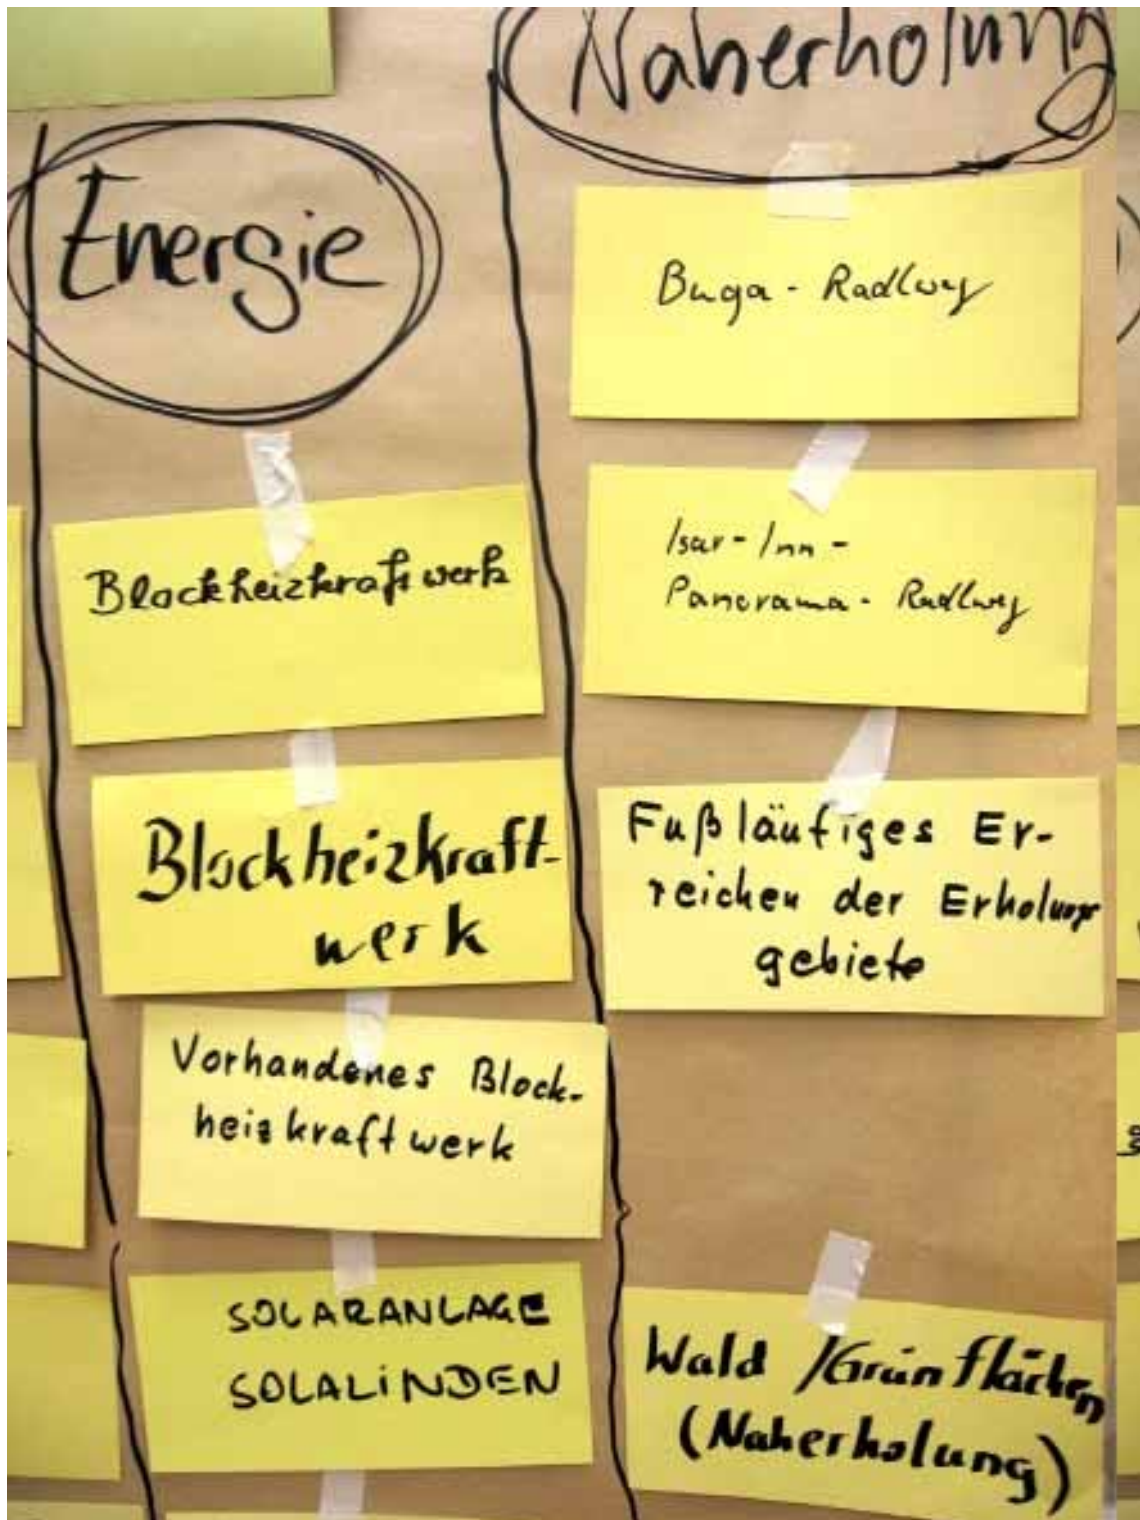 Energie
Blockheizkraftwerk
Blockheizkraft-
werk
Vorhandenes Block-
heizkraftwerk
SOLARANLAGE
SOLALINDEN
Naherholung
Buga - Radlweg
Isar-Inn-
Panorama- Radlweg
Fußläufiges Er-
reichen der Erholungs
gebiete
Wald /Grünflächen
(Naherholung)